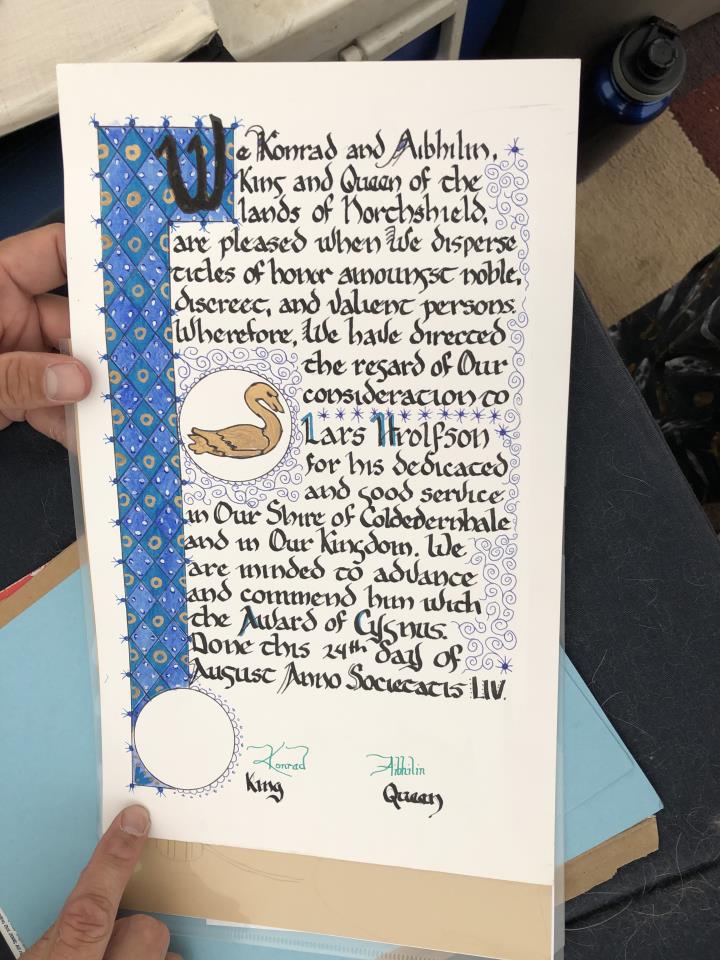 We Konrad and Aibhilin,
King and Queen of the
lands of Northshield,
are pleased when We disperse
titles of honor amoungst noble,
discreet, and valient persons.
Wherefore, We have directed
the regard of Our
consideration to
Lars Hrolfson
for his dedicated
and good service
in Our Shire of Coldedernhale
and in Our Kingdom. We
are minded to advance
and commend him with
the Award of Cygnus.
Done this 24th day of
August Anno Societatis LIV.
Konrad Aibhilin
King Queen